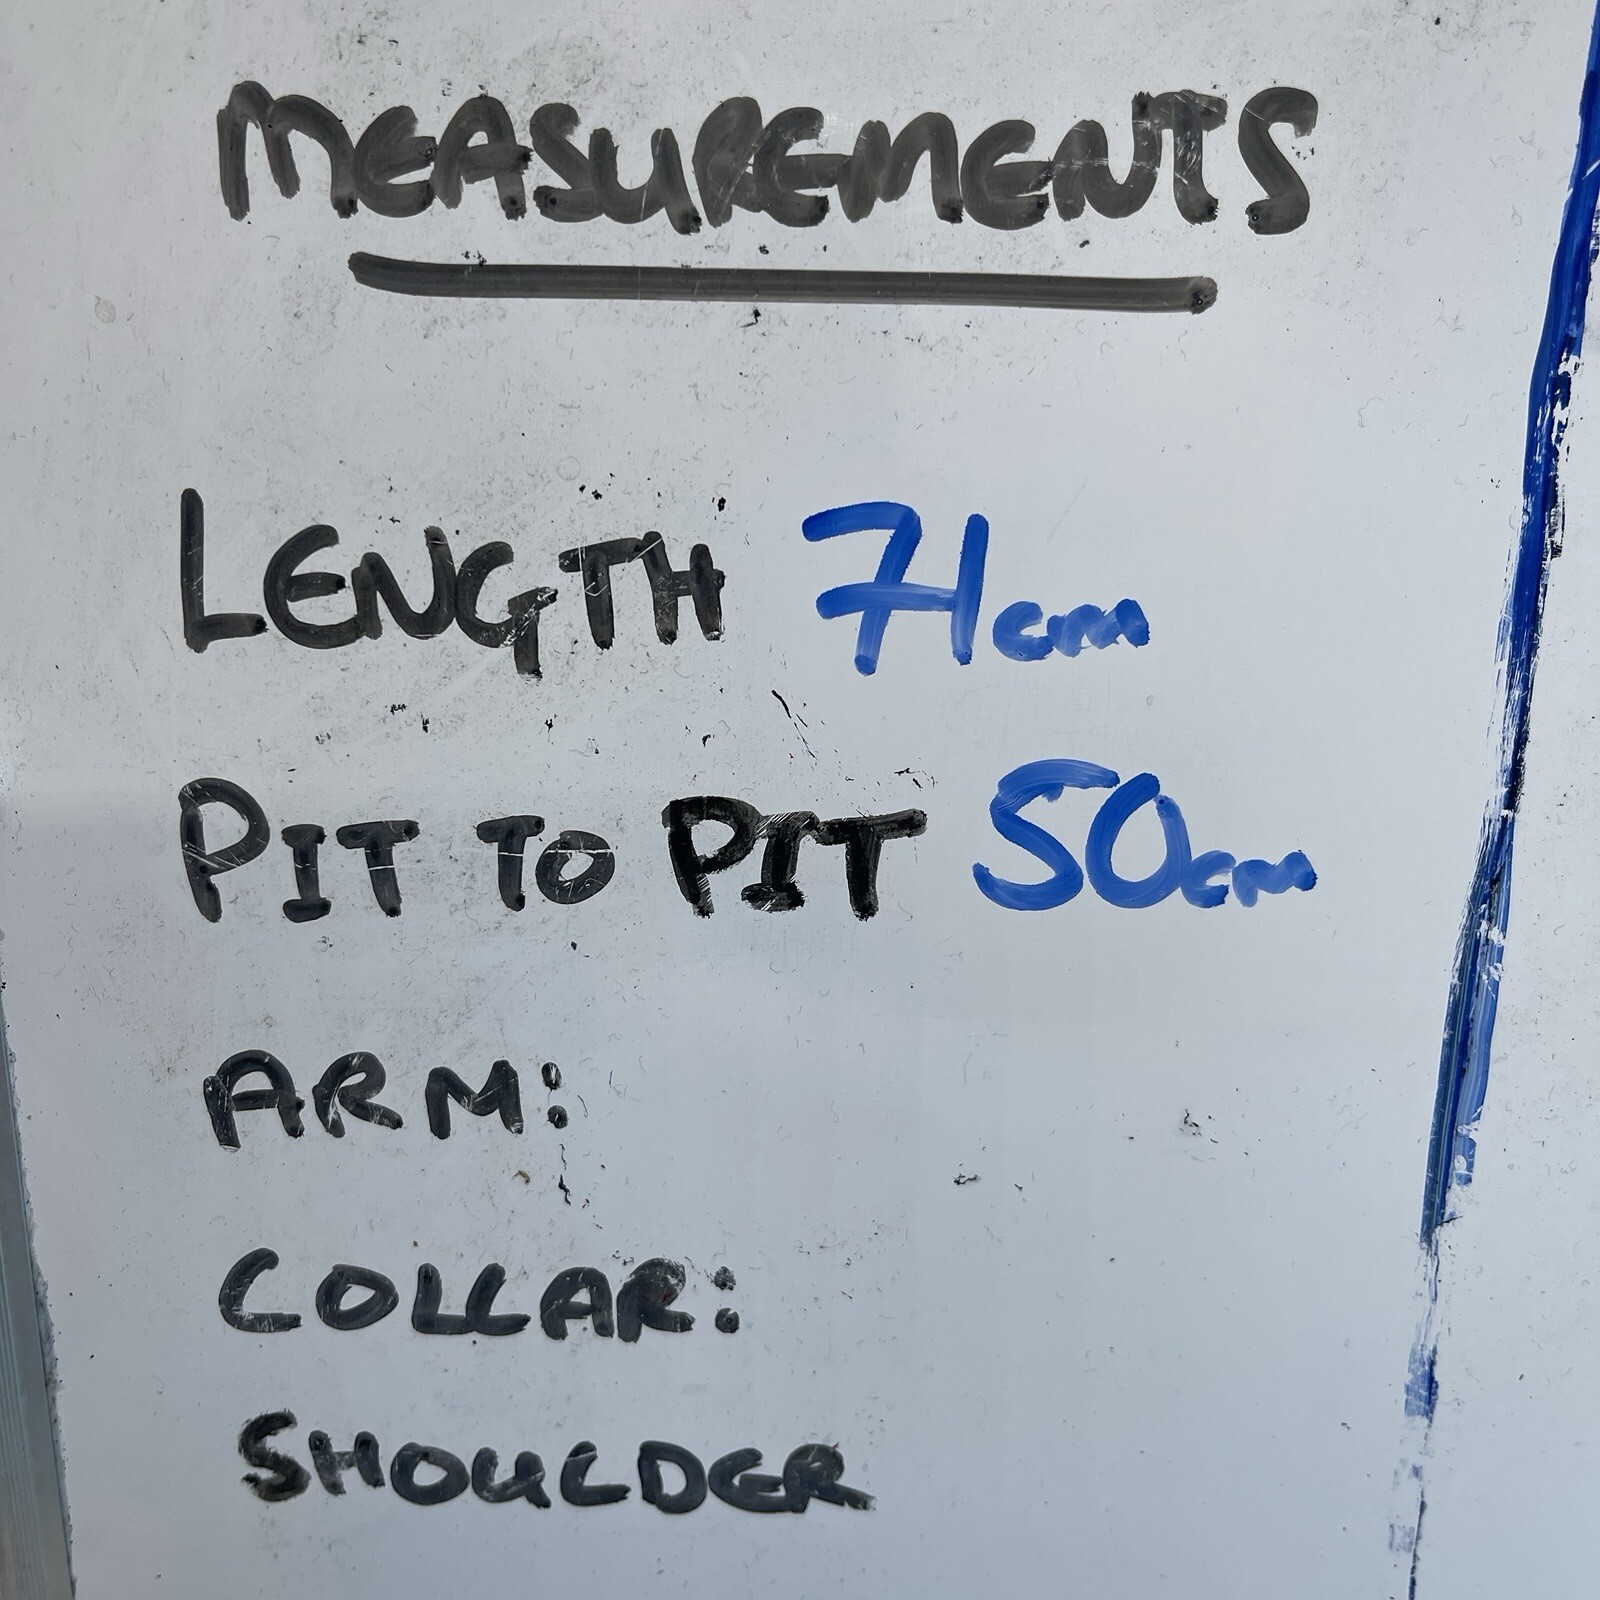 MEASUREMENTS
LENGTH 71cm
PIT TO PIT 50cm
ARM:
COLLAR:
SHOULDER